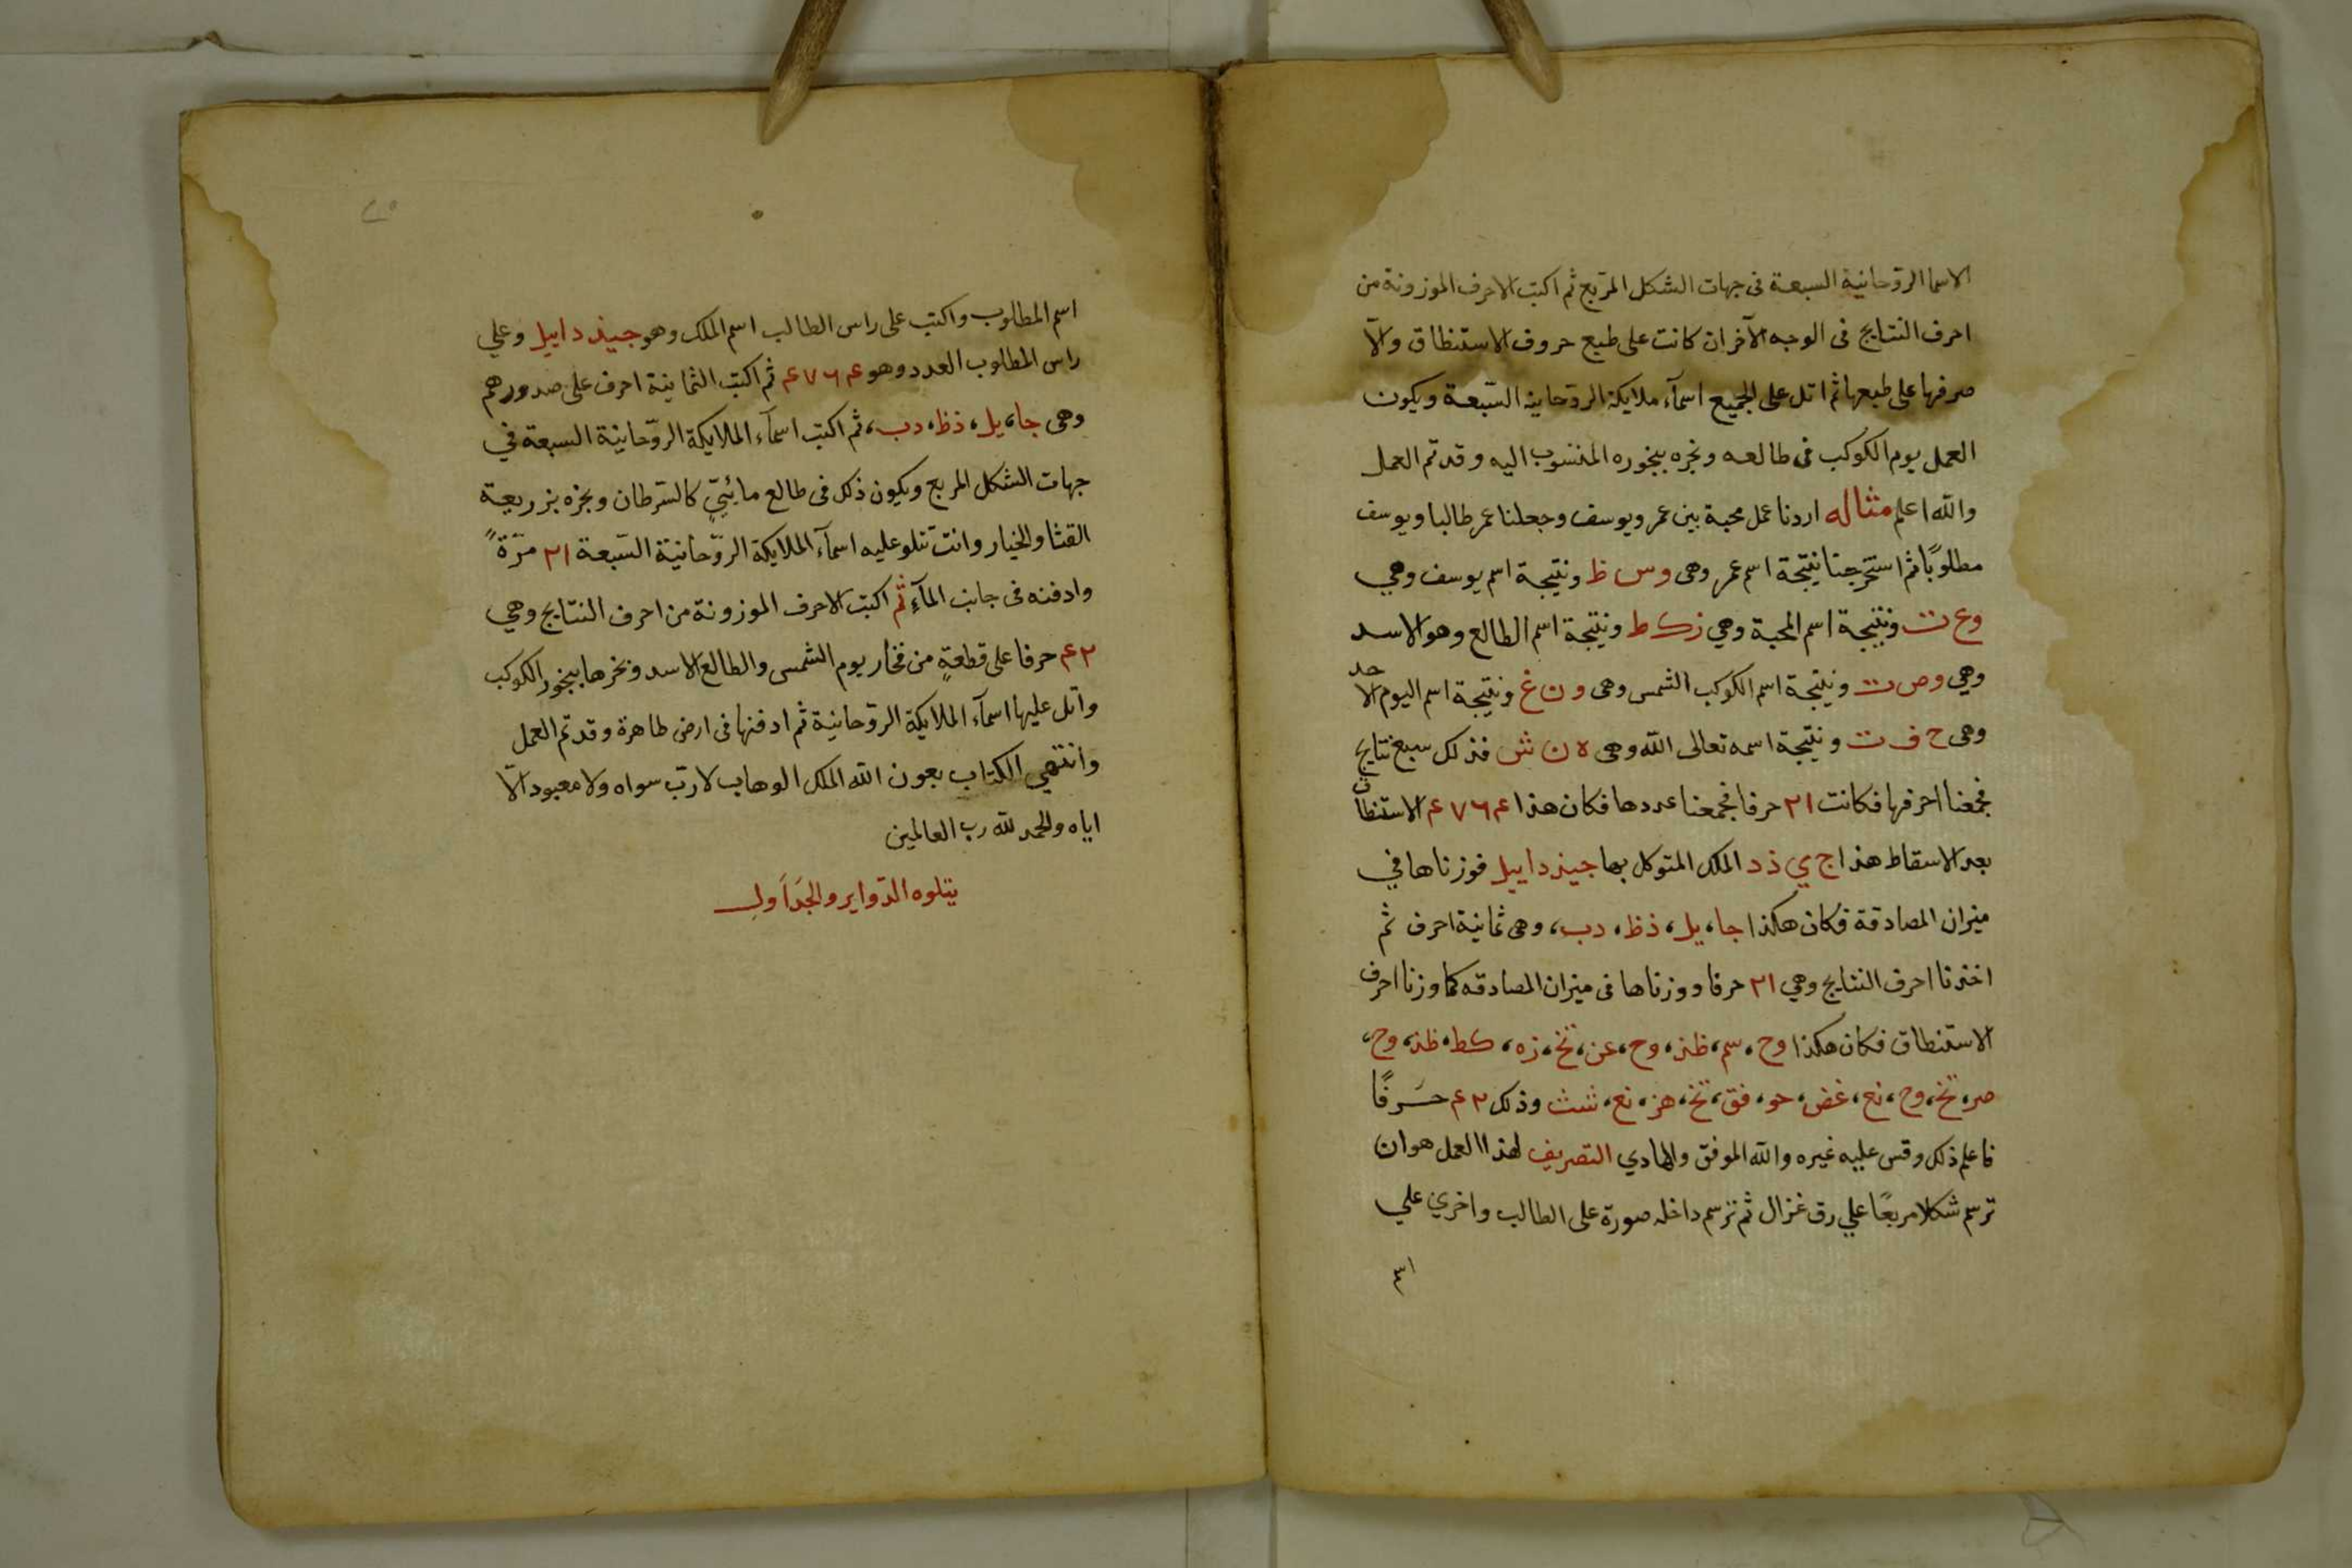 الاسما الروحانية السبعة فى جهات الشكل المربع ثم اكتب الاحرف الموزونة من
احرف النتايج فى الوجه الآخر ان كانت على طبع حروف الاستنطاق والّا
صرفها على طبعها ثم اتل على الجميع اسمآء ملايكة الروحانيه السّبعة ويكون
العمل يوم الكوكب فى طالعه وبخره ببخوره المنسوب اليه وقد تم العمل
والله اعلم مثاله اردنا عمل محبة بين عمر ويوسف وجعلنا عمر طالبا ويوسف
مطلوبًا ثم استخرجنا نتيجة اسم عمر وهى و س ظ ونتيجة اسم يوسف وهي
و ع ت ونتيجة اسم المحبة وهي ز ك ط ونتيجة اسم الطالع وهو الاسد
وهي و ص ت ونتيجة اسم الكوكب الشمس وهى و ن غ ونتيجة اسم اليوم الاحد
وهى ح ف ت ونتيجة اسمه تعالى الله وهى ه ن ش فذلك سبع نتايج
فجمعنا احرفها فكانت ٢١ حرفا فجمعنا عددها فكان هذا ٤٧٦٤ الاستنطاق
بعد الاسقاط هذا ج ي ذ د الملك المتوكل بها جيذداييل فوزناها في
ميزان المصادقة فكان هكذا جا، يل، ذظ، دب، وهى ثمانية احرف ثم
اخذنا احرف النتايج وهي ٢١ حرفا ووزناها فى ميزان المصادقه كما وزنا احرف
الاستنطاق فكان هكذا وح، سم، ظذ، وح، عن، تخ، زه، كط، ظذ، وح،
صر، تخ، وح، نع، غض، حو، فق، تخ، هز، نع، شث وذلك ٤٢ حرفًا
فاعلم ذلك وقس عليه غيره والله الموفق والهادي التصريف لهذا العمل هو ان
ترسم شكلا مربعًا علي رق غزال ثم ترسم داخله صورة على الطالب واخري علي
اسم المطلوب واكتب على راس الطالب اسم الملك وهو جيذداييل وعلي
راس المطلوب العدد وهو ٤٧٦٤ ثم اكتب الثمانية احرف على صدورهم
وهى جا، يل، ذظ، دب، ثم اكتب اسمآء الملايكة الروّحانية السبعة في
جهات الشكل المربع ويكون ذلك فى طالع مائيّ كالسّرطان وبخره بزريعة
القثا والخيار وانت تتلو عليه اسمآء الملايكة الروّحانيّة السّبعة ٢١ مرّةً
وادفنه فى جانب المآءِ ثم اكتب الاحرف الموزونة من احرف النتايج وهي
٤٢ حرفا على قطعةٍ من فخار يوم الشمس والطالع الاسد وبخرها ببخور الكوكب
واتل عليها اسمآء الملايكة الروّحانيّة ثم ادفنها فى ارض طاهرة وقد تم العمل
وانتهي الكتاب بعون الله الملك الوهاب لا ربّ سواه ولا معبود الّا
اياه والحمد لله رب العالمين
يتلوه الدّواير والجَدَاَول